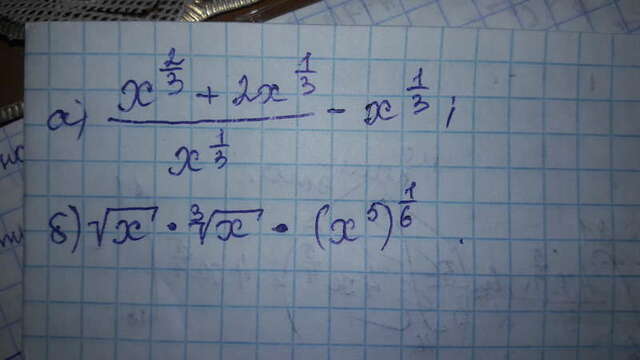 а) (x^(2/3) + 2x^(1/3)) / x^(1/3) - x^(1/3);
б) √x · ³√x · (x⁵)^(1/6).